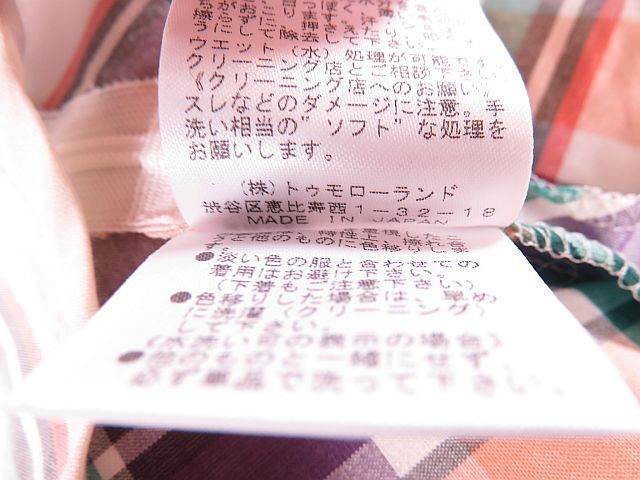 ウエット(水)処理が可能です。
クリーニング店とご相談下さい。
《クリーニング店へのお願い》
スレなどのダメージに注意。手
洗い相当の"ソフト"な処理を
お願いします。
(株)トゥモローランド
渋谷区恵比寿西1-32-18
MADE IN JAPAN
●淡い色の服と合わせての
着用はお避け下さい。
(下着もご注意下さい)
●色移りした場合は、早め
に洗濯(クリーニング)
して下さい。
●(水洗い可の表示の場合)
他のものと一緒にせず、
必ず単品で洗って下さい。